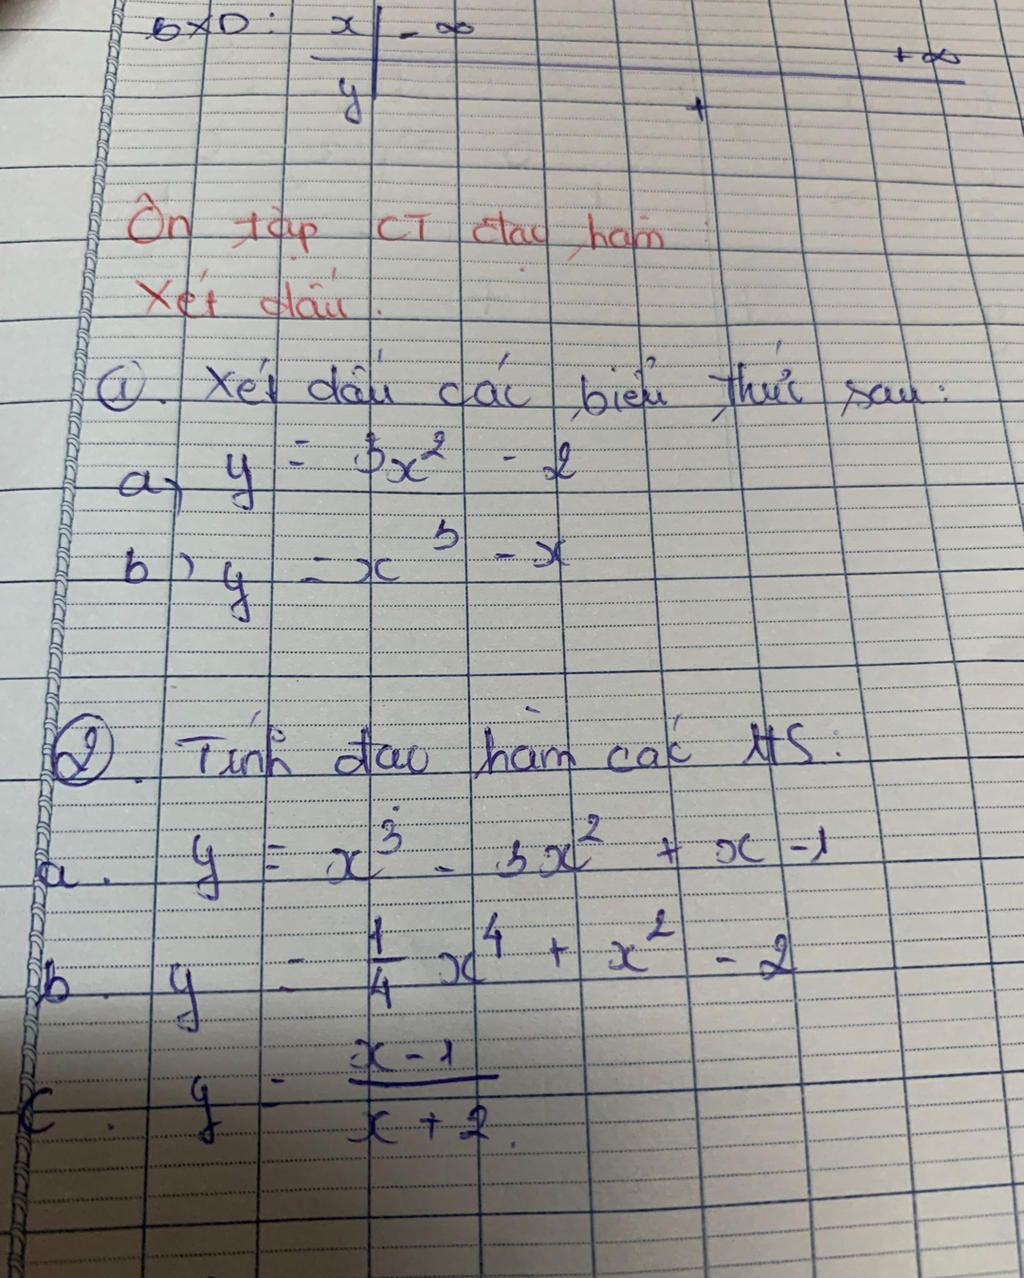 BXD: x -∞ +∞
y +
Ôn tập CT đạo hàm
Xét dấu.
①. Xét dấu các biểu thức sau:
a, y = 3x² - 2
b) y = x³ - x
②. Tính đạo hàm các HS:
a. y = x³ - 3x² + x - 1
b. y = 1/4 x⁴ + x² - 2
c. y = x - 1 / x + 2.